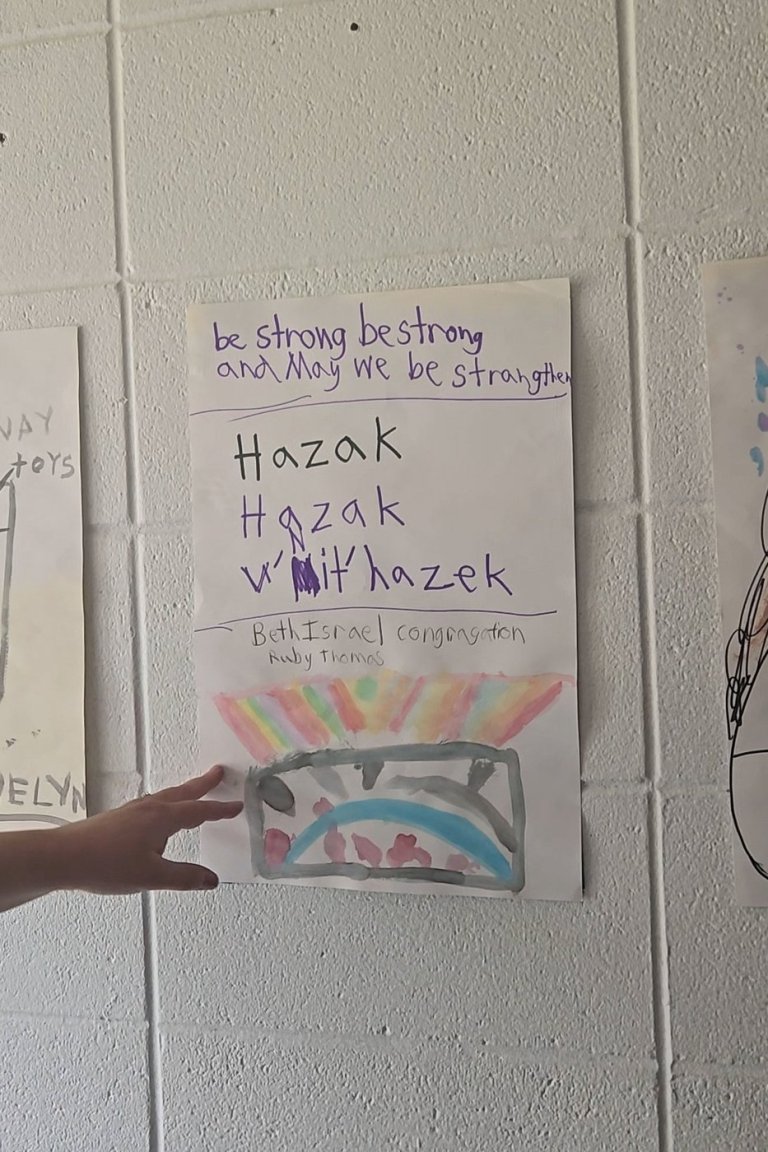 be strong be strong
and May we be strangthen
Hazak
Hazak
v'nit'hazek
Beth Israel congragation
Ruby Thomas
WAY
toYS
VELYN